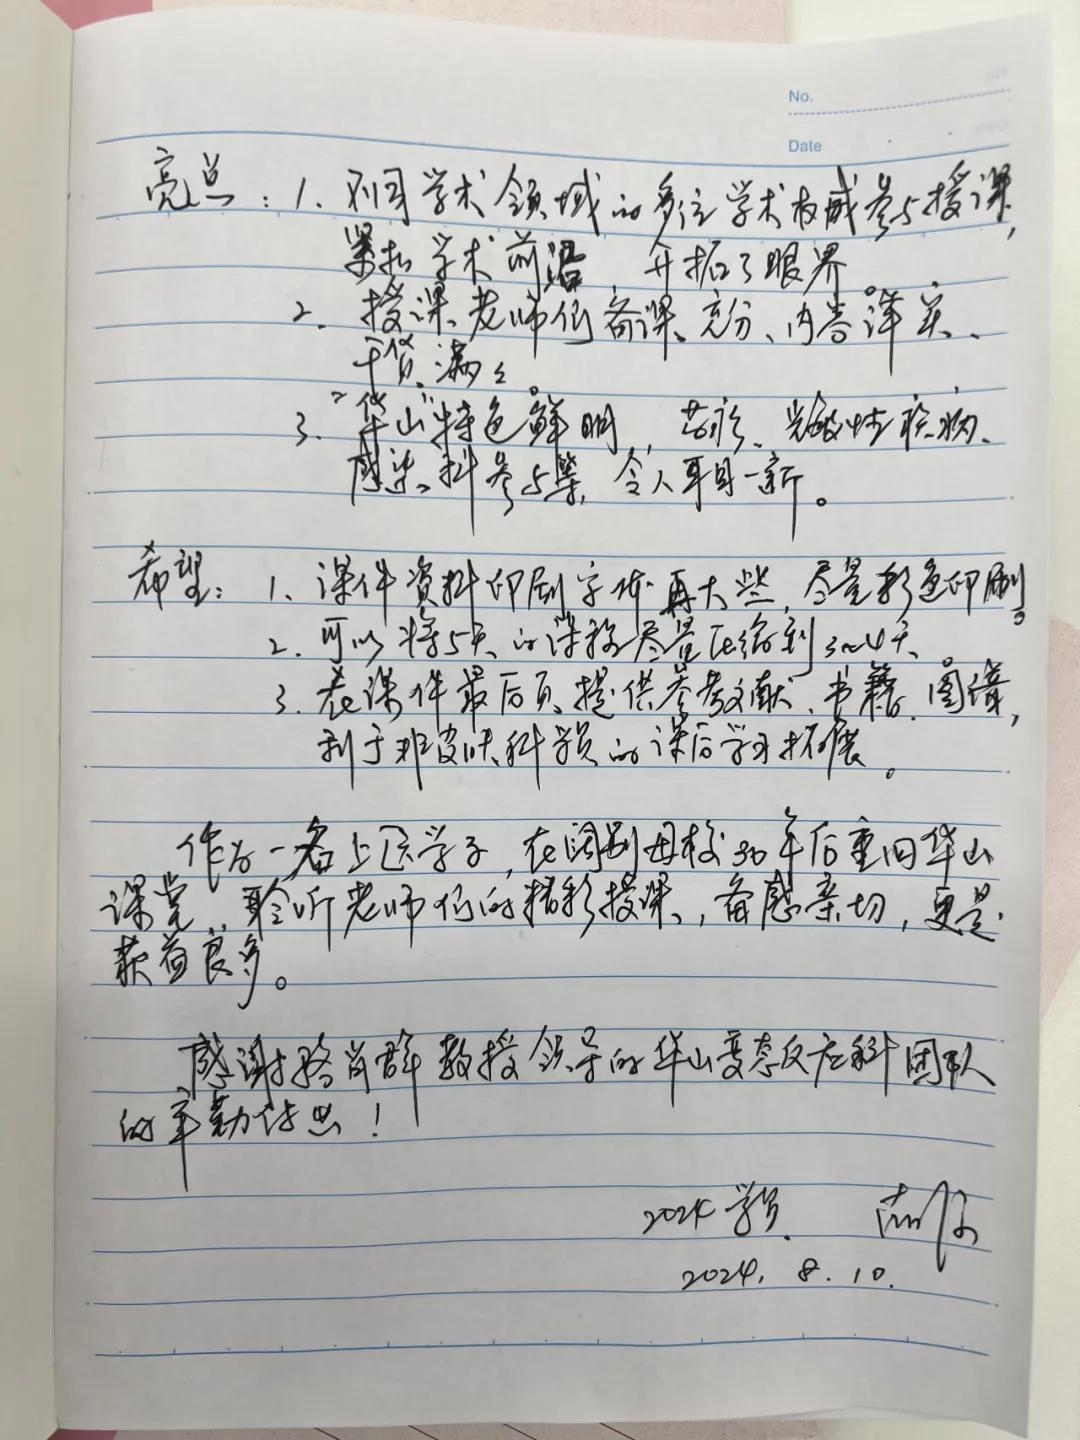 No.
Date
亮点：1. 不同学术领域的多位学术权威参与授课，
紧扣学术前沿，开拓了眼界。
2. 授课老师们备课充分、内容详实、
干货满满。
3. "华山"特色鲜明，皮肤性疾病、
感染科参与等，令人耳目一新。
希望：1. 课件资料印刷字体再大些，尽量彩色印刷。
2. 可以将5天的课程尽量压缩到3~4天。
3. 在课件最后页提供参考文献、书籍、图谱，
利于非皮肤科学员的课后学习拓展。
作为一名上医学子，在阔别母校30年后重回华山
课堂，聆听老师们的精彩授课，备感亲切，更是
获益良多。
感谢骆肖群教授领导的华山变态反应科团队
的辛勤付出！
2024学员
2024. 8. 10.